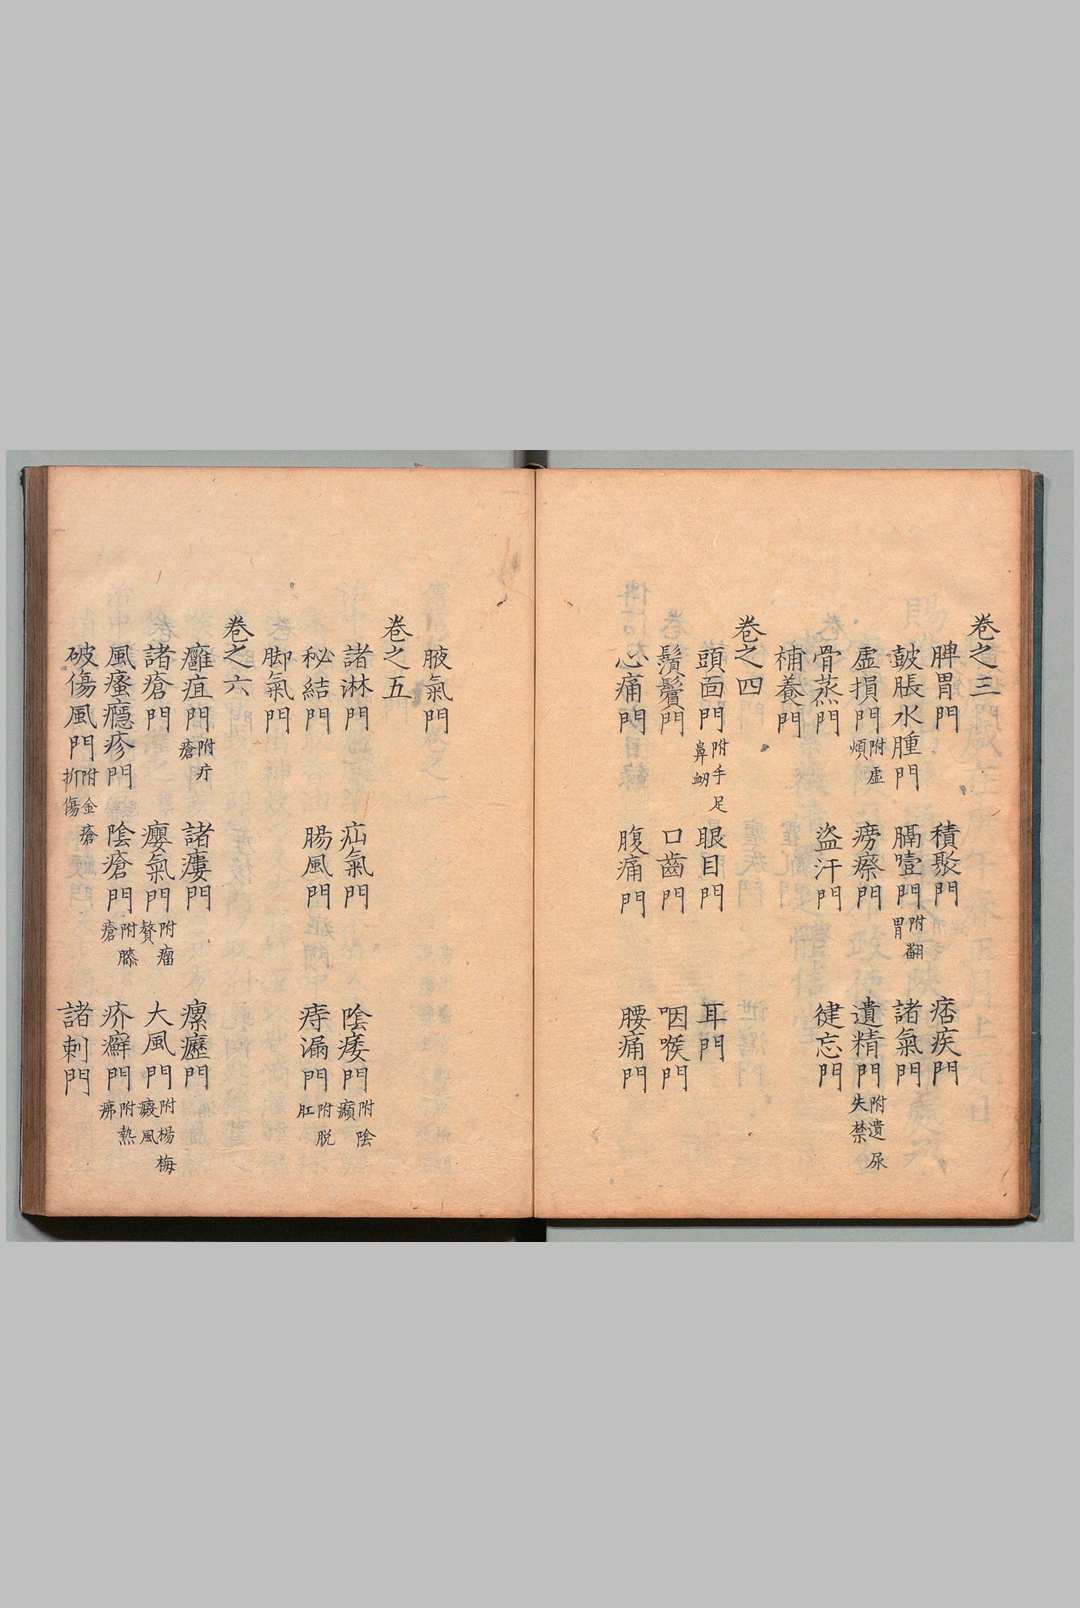 卷之三
脾胃門 積聚門 痞疾門
皷脹水腫門 膈噎門附翻胃 諸氣門
虛損門附虛煩 癆瘵門 遺精門附遺尿失禁
骨蒸門 盜汗門 健忘門
補養門
卷之四
頭面門附手足鼻衂 眼目門 耳門
鬚鬢門 口齒門 咽喉門
心痛門 腹痛門 腰痛門
腋氣門
卷之五
諸淋門 疝氣門 陰痿門附陰㿗
秘結門 腸風門 痔漏門附脱肛
脚氣門
卷之六
癰疽門附疔瘡 諸瘻門 瘰癧門
諸瘡門 癭氣門附瘤贅 大風門附楊梅癜風
風瘙癮疹門 陰瘡門附臁瘡 疥癬門附熱疿
破傷風門附金瘡折傷 諸刺門